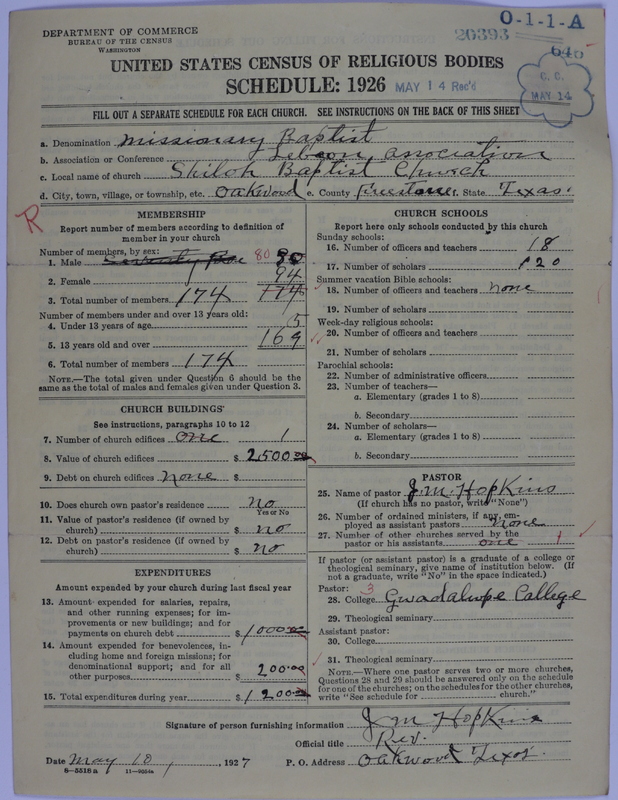 DEPARTMENT OF COMMERCE
BUREAU OF THE CENSUS
WASHINGTON
O-1-1-A
20393
645
UNITED STATES CENSUS OF RELIGIOUS BODIES
SCHEDULE: 1926 MAY 14 Rec'd
C. C.
MAY 14
FILL OUT A SEPARATE SCHEDULE FOR EACH CHURCH. SEE INSTRUCTIONS ON THE BACK OF THIS SHEET
a. Denomination Missionary Baptist
b. Association or Conference Lebeon Association
c. Local name of church Shiloh Baptist Church
d. City, town, village, or township, etc. Oakwood e. County Freestone f. State Texas.
R
MEMBERSHIP
Report number of members according to definition of
member in your church
Number of members, by sex:
1. Male 80
2. Female 94
3. Total number of members 174 174
Number of members under and over 13 years old:
4. Under 13 years of age 5
5. 13 years old and over 169
6. Total number of members 174
NOTE.—The total given under Question 6 should be
same as the total of males and females given under Question 3.
CHURCH BUILDINGS
See instructions, paragraphs 10 to 12
7. Number of church edifices one 1
8. Value of church edifices $ 2500.00
9. Debt on church edifices none $
10. Does church own pastor's residence no
Yes or No
11. Value of pastor's residence (if owned by
church) $ no
12. Debt on pastor's residence (if owned by
church) $ no
EXPENDITURES
Amount expended by your church during last fiscal year
13. Amount expended for salaries, repairs,
and other running expenses; for im-
provements or new buildings; and for
payments on church debt $ 1000.00
14. Amount expended for benevolences, in-
cluding home and foreign missions; for
denominational support; and for all
other purposes $ 200.00
15. Total expenditures during year $ 1200.00
CHURCH SCHOOLS
Report here only schools conducted by this church
Sunday schools:
16. Number of officers and teachers 18
17. Number of scholars 120
Summer vacation Bible schools:
18. Number of officers and teachers none
19. Number of scholars
Week-day religious schools:
20. Number of officers and teachers
21. Number of scholars
Parochial schools:
22. Number of administrative officers
23. Number of teachers—
a. Elementary (grades 1 to 8)
b. Secondary
24. Number of scholars—
a. Elementary (grades 1 to 8)
b. Secondary
PASTOR
25. Name of pastor J. M. Hopkins
(If church has no pastor, write "None")
26. Number of ordained ministers, if any, em-
ployed as assistant pastors none
27. Number of other churches served by the
pastor or his assistants one 1
If pastor (or assistant pastor) is a graduate of a college or
theological seminary, give name of institution below. (If
not a graduate, write "No" in the space indicated.)
Pastor: 3
28. College Gwadalupe Callege
29. Theological seminary
Assistant pastor:
30. College
31. Theological seminary
NOTE.—Where one pastor serves two or more churches,
Questions 28 and 29 should be answered only on the schedule
for one of the churches; on the schedules for the other churches,
write "See schedule for church."
Signature of person furnishing information J M Hopkins
Official title Rev.
Date May 10, 1927 P. O. Address Oakwood Texas.
8-5518a 11-9264a